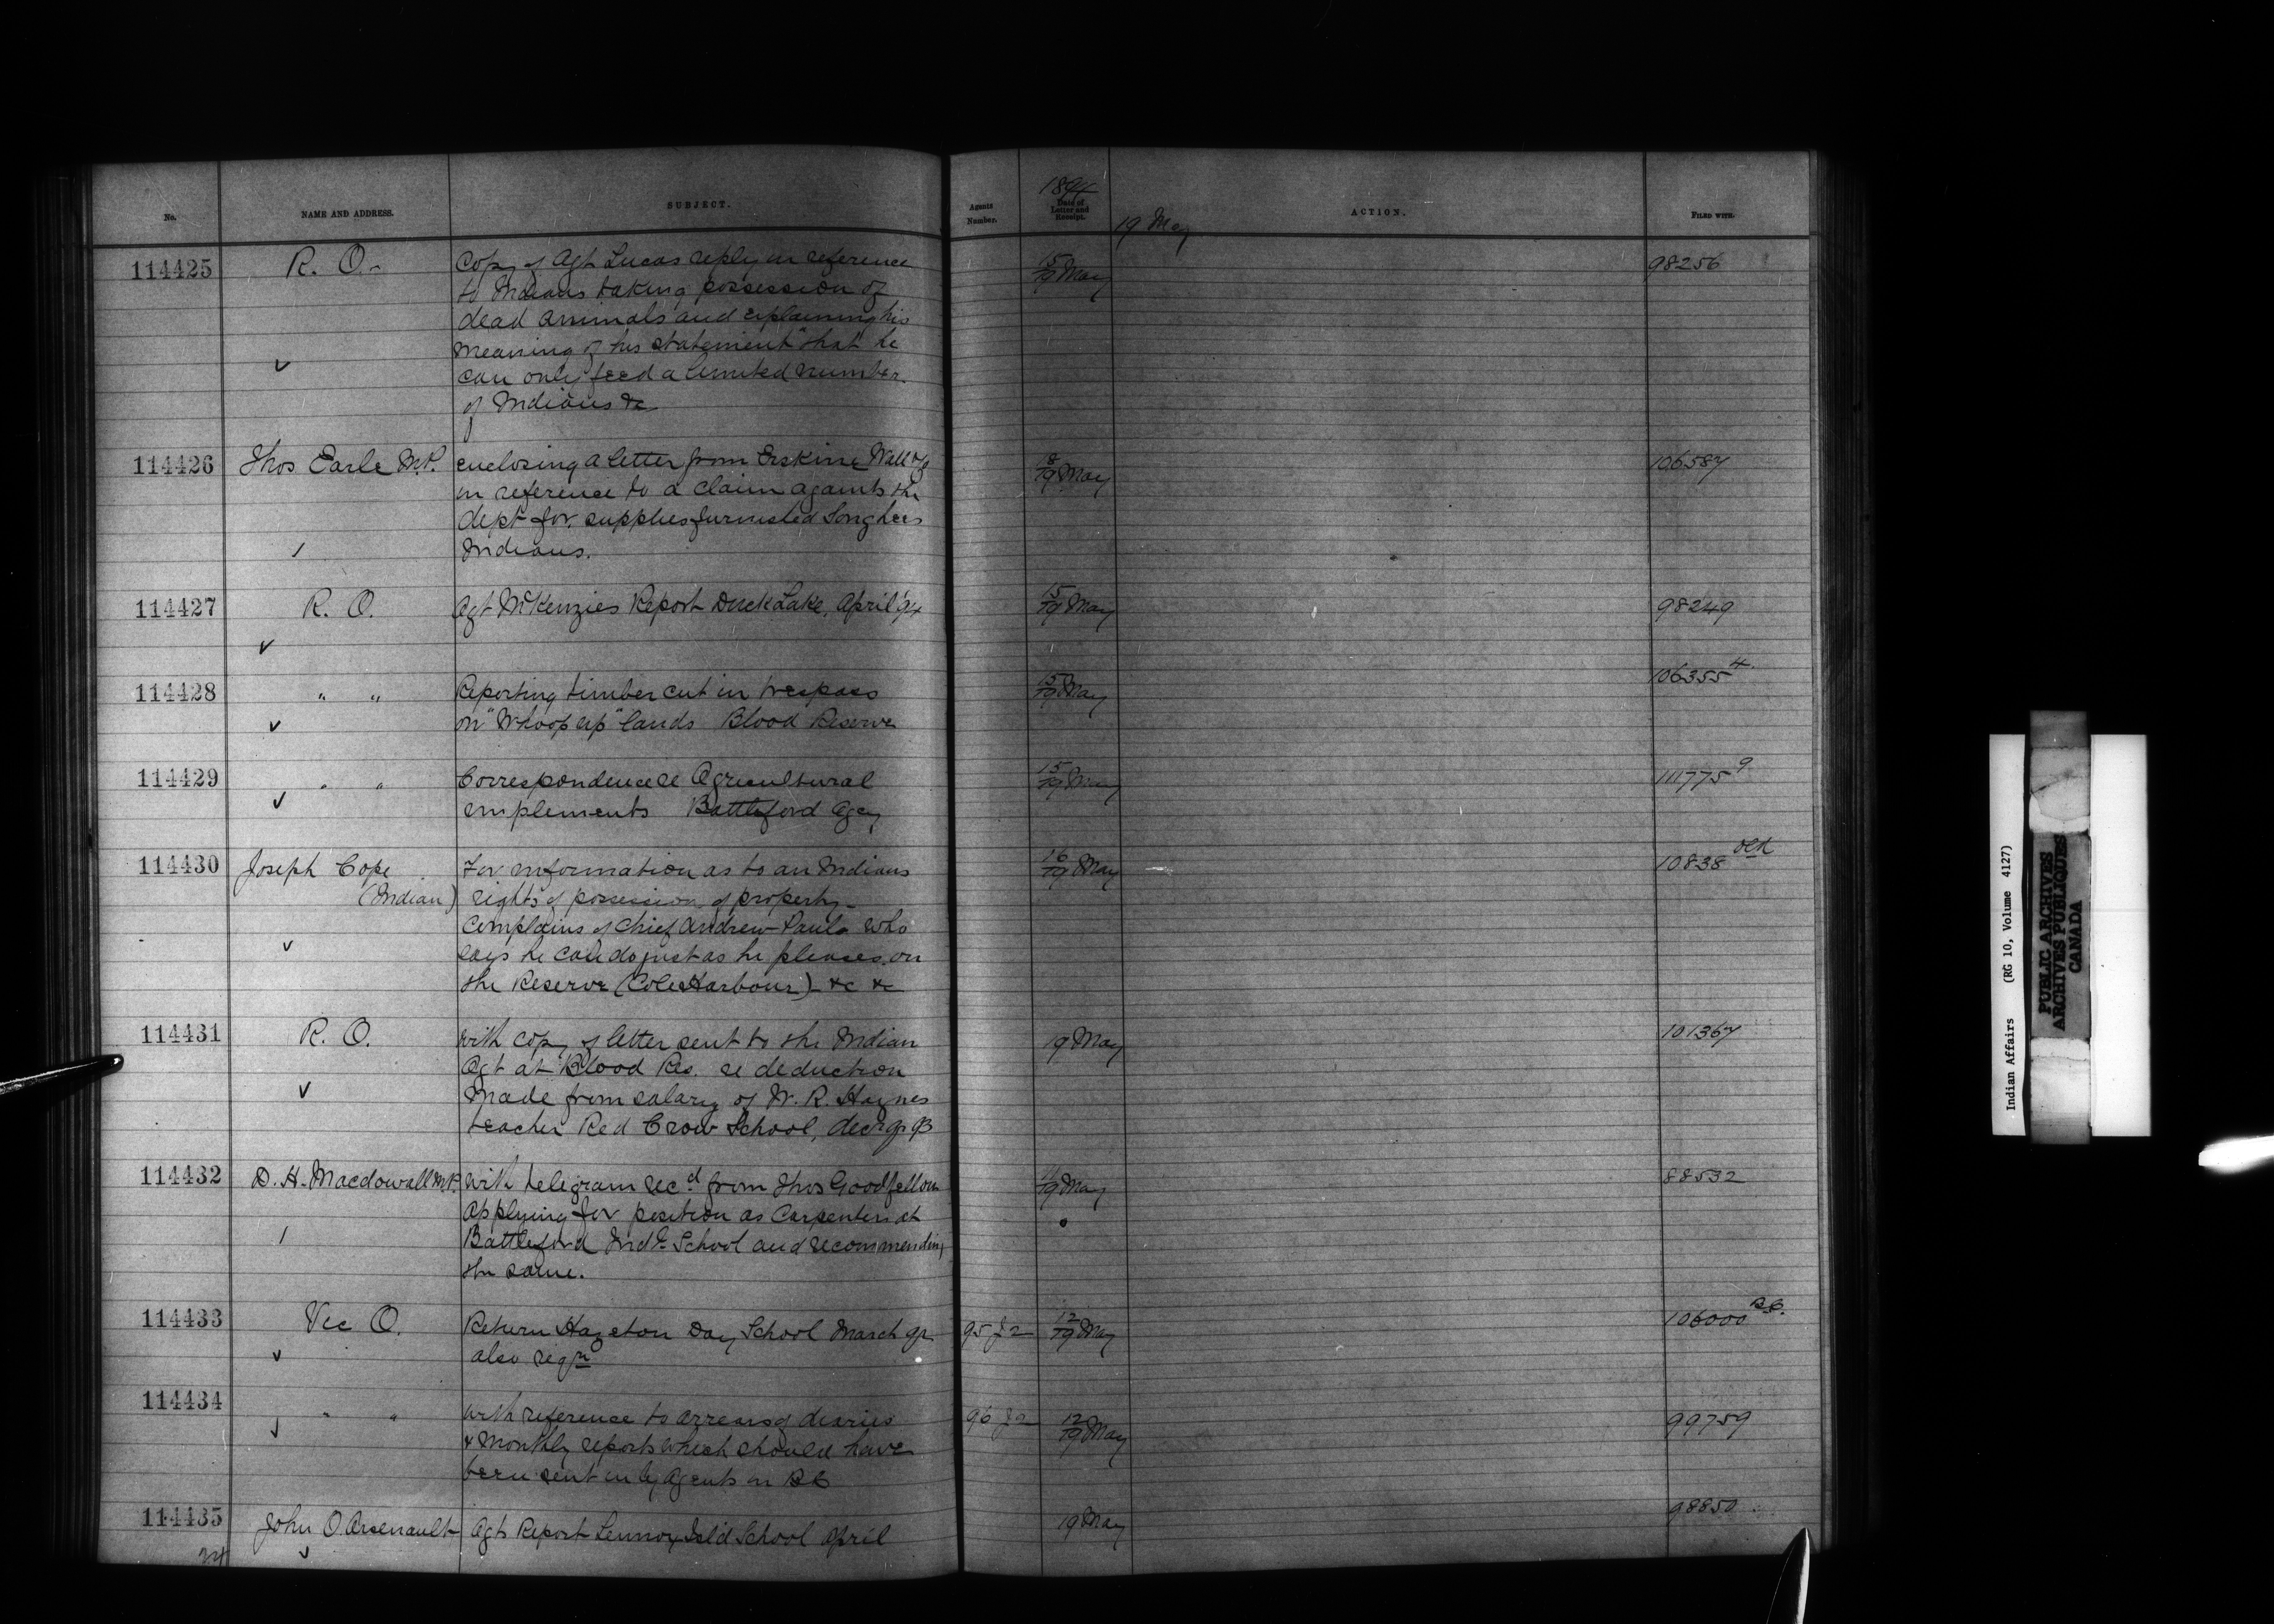 No. NAME AND ADDRESS. SUBJECT. Agents Number. 1894 Date of Letter and Receipt. ACTION. FILED WITH.
19 May
114425 R. O. Copy of Agt Lucas reply in reference 15/19 May 98256
to Indians taking possession of
dead animals and explaining his
meaning of his statement "that he
can only feed a limited number
of Indians &c
114426 Thos Earle M.P. enclosing a letter from Erskine Wall & Co 8/19 May 106587
in reference to a claim againts the
dept for supplies furnished Songhees
Indians.
114427 R. O. Agt McKenzies Report Duck Lake, April '94 15/19 May 98249
114428 " " Reporting timber cut in trespass 15/19 May 106355 4
on "Whoop up" lands Blood Reserve
114429 " " Correspondence re Agricultural 15/19 May 111775 9
implements Battleford Agcy
114430 Joseph Cope For information as to an Indians 16/19 May 10838 old
(Indian) rights of possession of property -
Complains of Chief Andrew Paul who
says he can do just as he pleases on
the Reserve (Cole Harbour) &c &c
114431 R. O. with copy of letter sent to the Indian 19 May 101367
Agt at Blood Res. re deduction
made from salary of W. R. Haynes
teacher Red Crow School, Decr qr 93
114432 D. H. Macdowall M.P. with telegram recd from Thos Goodfellow 11/19 May 88532
applying for position as Carpenter at
Battleford Indl School and recommending
the same.
114433 Vic O. Return Hazelton Day School March qr 95 J 2 12/19 May 106000 B.C.
also reqn
114434 " " with reference to arrears of diaries 96 J 2 12/19 May 99759
& monthly reports which should have
been sent in by Agents in B C
114435 John O. Arsenault Agts Report Lennox Isld School April 19 May 98850
Indian Affairs (RG 10, Volume 4127)
PUBLIC ARCHIVES
ARCHIVES PUBLIQUES
CANADA